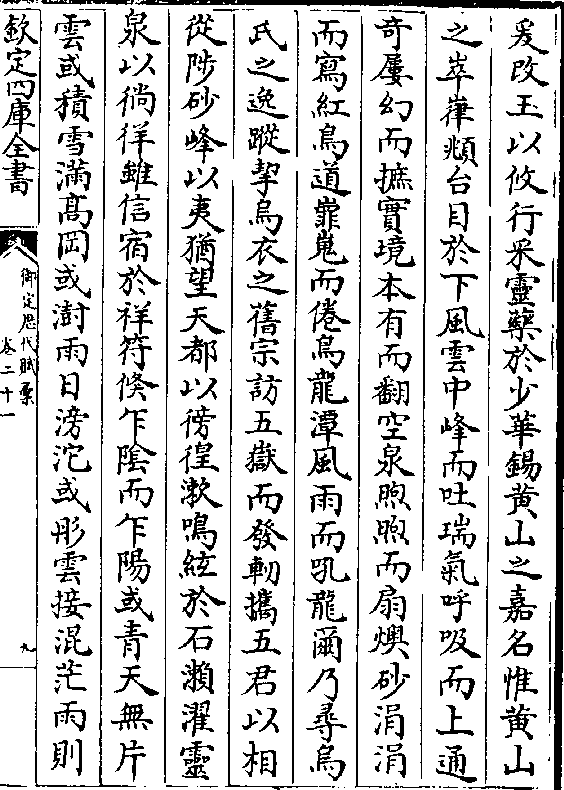 爰改玉以攸行采靈藥於少華錫黄山之嘉名惟黄山
之崒嵂頫台目於下風雲中峰而吐瑞氣呼吸而上通
奇屢幻而摭實境本有而翻空泉煦煦而扇燠砂涓涓
而寫紅鳥道嶵嵬而倦鳥龍潭風雨而吼龍爾乃尋烏
氏之逸蹤挈烏衣之舊宗訪五嶽而發軔攜五君以相
從陟砂峰以夷猶望天都以徬徨漱鳴絃於石瀬濯靈
泉以徜徉雖信宿於祥符倏乍陰而乍陽或青天無片
雲或積雪滿髙岡或澍雨日滂沱或彤雲接混茫雨則
欽定四庫全書
御定歷代賦彙
卷二十一
九